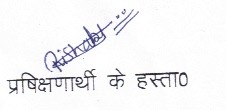 Rishabh
प्रषिक्षणार्थी के हस्ता0